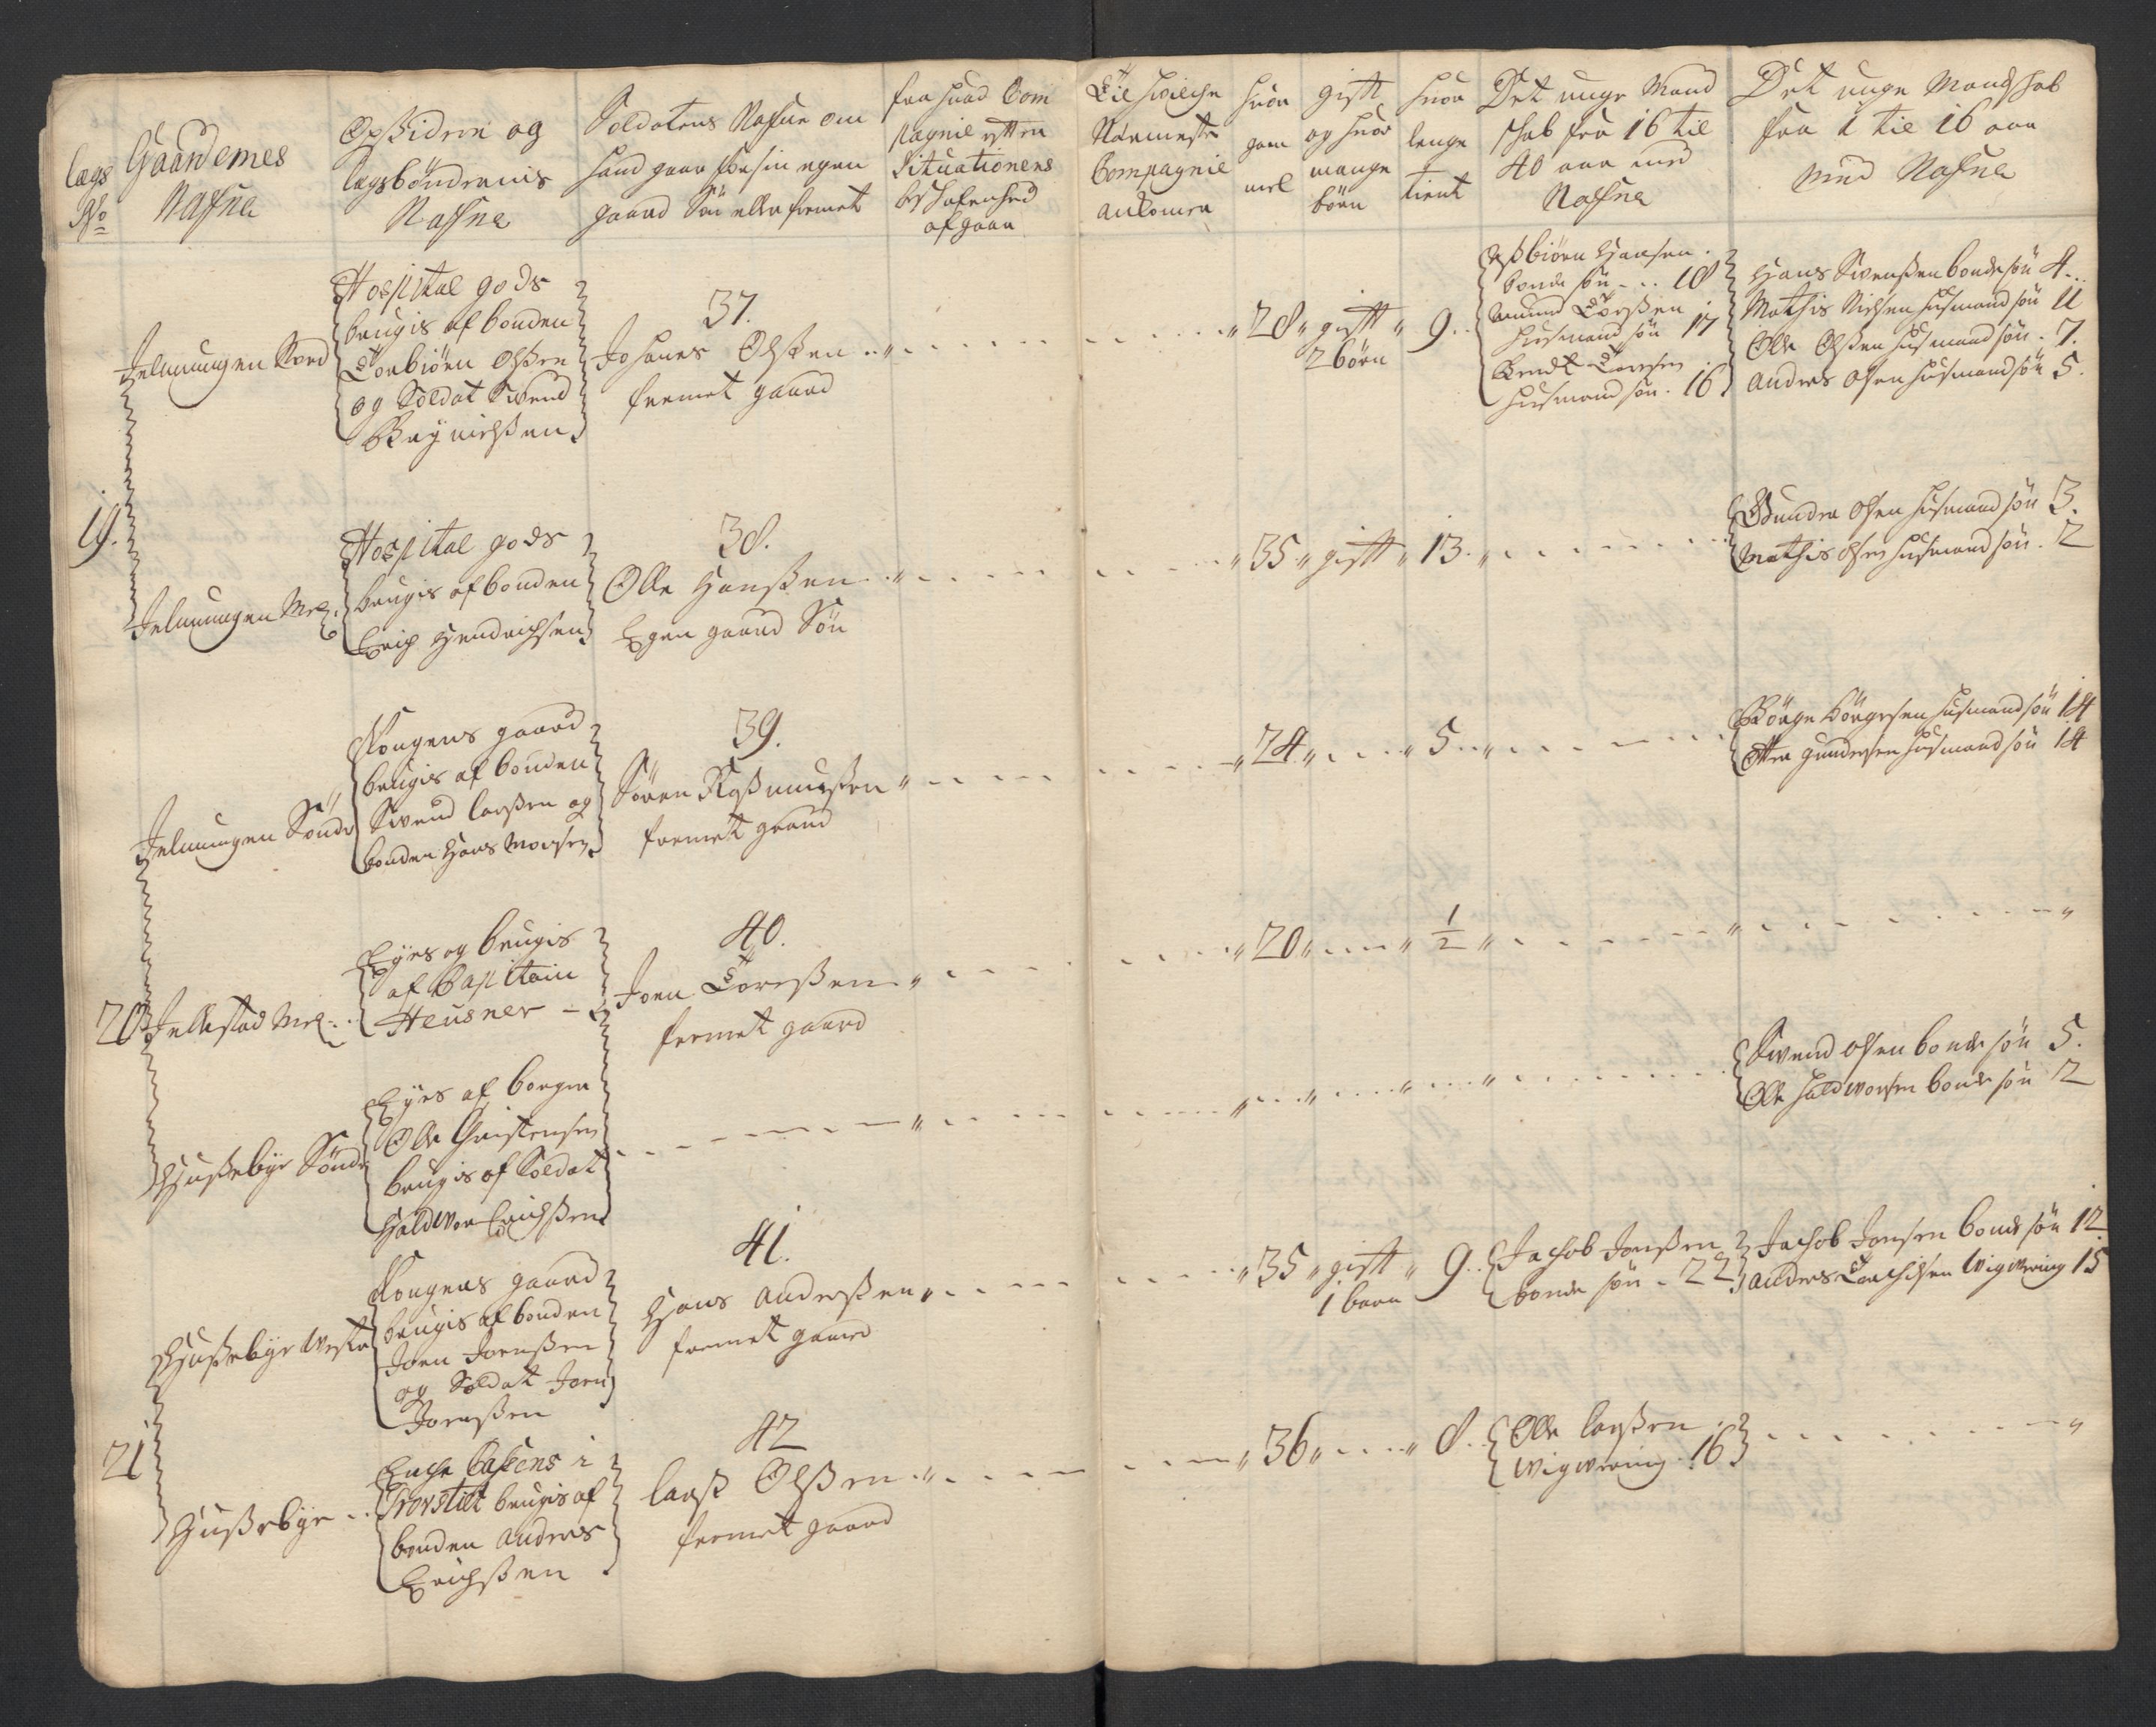 lægs
No
Gaardernes
Nafne
Opsidere og
lægsböndernis
Nafne
Soldatens Nafne om
hand gaar for sin egen
gaard Sön eller fremet
fra huad Com
pagnie efter
Situationens
beschafenhed
afgaar
Til hvilche
Nærmeste
Compagnie
ankomer
huor
gam
mel
gift
og huor
mange
börn
huor
lenge
tient
Det unge Mand
schab fra 16 til
40 aar med
Nafne
Det unge Mandschab
fra 1 til 16 aar
med Nafne
19.
Jelmungen Nord
Hospital gods
brugis af bonden
Torbiörn Olssen
og Soldat Svend
37.
Johanes Olssen
fremet gaard
28 gift 9
2 börn
Assbiörn Hansen
bonde sön 18
Amund Torssen
husmand sön 17
Bendt Toresen
husmand sön 16
Hans Svenssen bonde sön 4
Mathis Nielsen husmand sön 11
Olle Olssen husmand sön 7.
Anders Olsen husmand sön 5.
Jelmungen Mel:
Hospital gods
brugis af bonden
Erich Hendrichsen
38.
Olle Hanssen
Egen gaard Sön
35 gift 13
Gunder Olsen husmand sön 3.
Mathis Olsen husmand sön 2
Jelmungen Sönder
Kongens gaard
brugis af bonden
Svend Larssen og
bonden Hans Monsen
39.
Sören Rassmussen
fremet gaard
24 5
Börge Börgesen husmand sön 14
Otter Gundersen husmand sön 14
20
Jellestad Mel:
Eyes og brugis
af Capitain
Heusner
40.
Joen Toressen
fremet gaard
20 1/2
Hussebye Sönder
Eyes af borger
Olle Christensen
brugis af Soldat
Haldvor Erichssen
Svend Olsen bonde sön 5.
Olle Haldvorsen bonde sön 2
Hussebye Vester
Kongens gaard
brugis af bonden
Joen Joenssen
og Soldat Joen
Joenssen
41.
Hans Anderssen
fremet gaard
35 gift 9
1 barn
Jachob Jonssen
bonde sön 22
Jachob Jonsen bonde sön 12
Anders Torchilsen Vigvering 15
21
Hussebye
Enche Casens i
brugis af
bonden Anders
Erichssen
42
Larss Olssen
fremet gaard
36 8
Olle Larssen
Vigvering 16